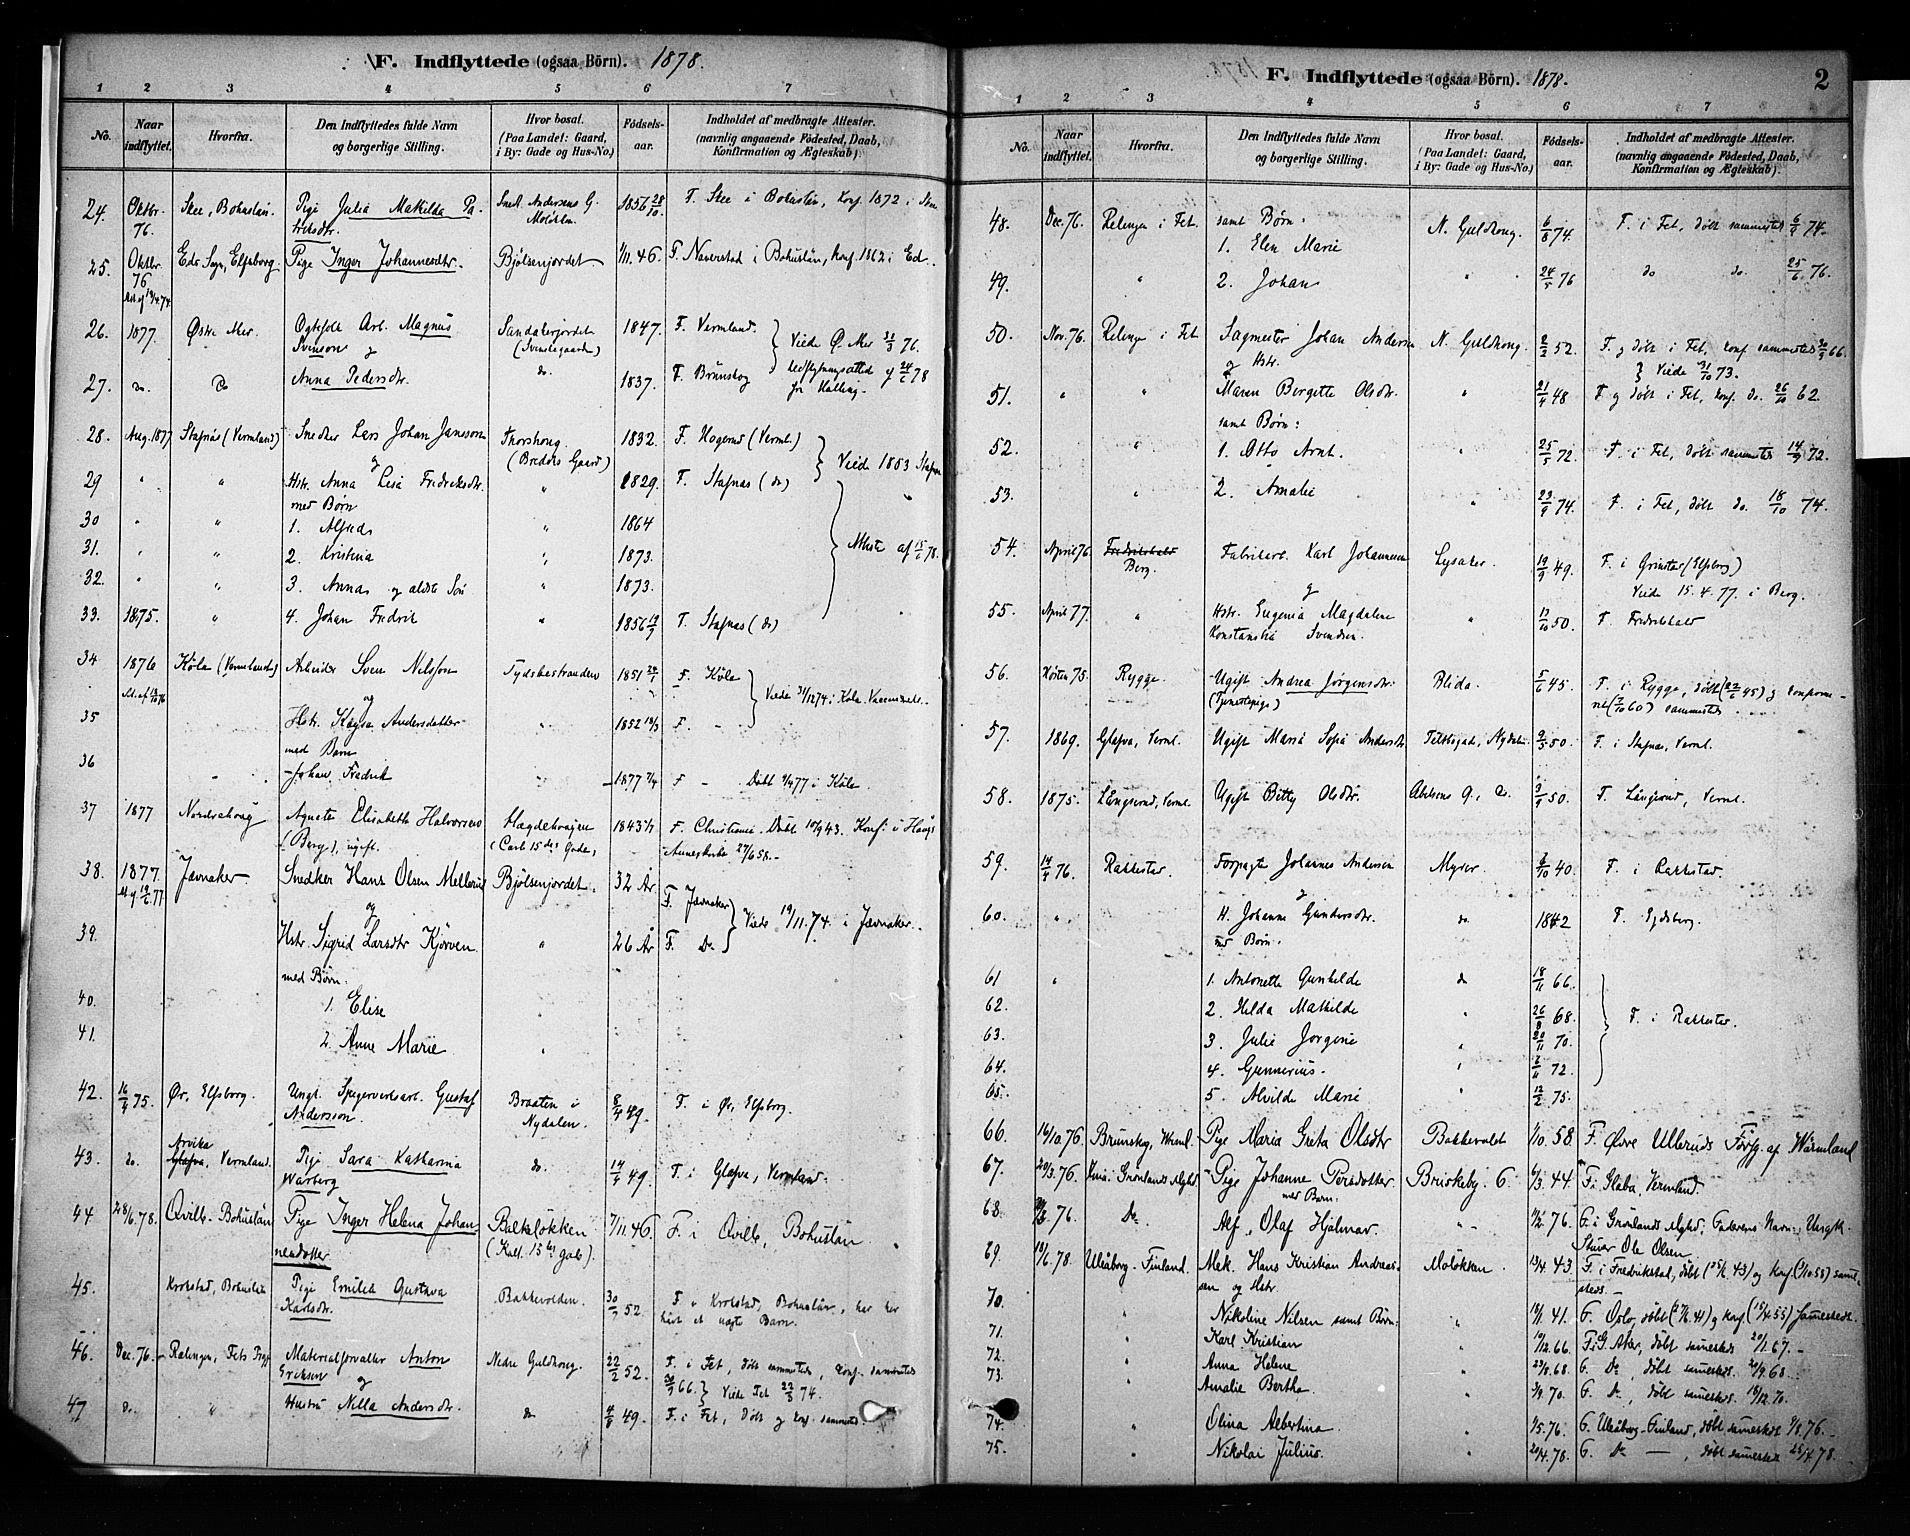 F. Indflyttede (ogsaa Börn). 1878.
1 2 3 4 5 6 7
No. Naar indflyttet. Hvorfra. Den Indflyttedes fulde Navn og borgerlige Stilling. Hvor bosat. (Paa Landet: Gaard, i By: Gade og Hus-No.) Födsels-aar. Indholdet af medbragte Attester. (navnlig angaaende Födested, Daab, Konfirmation og Ægteskab).
24. Oktbr. 76. Skee, Bohuslän. Pige Julia Mathilda Pa- Sned. Andersens G. 1856 28/10. F. Skee i Bohuslän, konf. 1872 i
25. Oktbr 76 Eds Sogn, Elfsborg Pige Inger Johannesdtr. Bjölsenjordet. 1/11.46. F. Naverstad i Bohuslän, konf. 1862 i Ed.
26. 1877. Østre Aker. Arb. Magnus Svenson og Sandakerjordet 1847. F. Vermland. } Viede Ø. Aker 76.
27. do. Do Anna Pedersdtr. do. 1837. F. Brunskog
28. Aug. 1877 Stafnäs (Vermland) Snedker Lars Johan Jansson og Thorshoug. (Bredors Gaard) 1832. F. (Verml.) } Viede 1853 Stafnäs
29 " " Hstr. Anna Lisa Fredriksdtr. med Börn " 1829. F. Stafnäs (do)
30 " " 1. Alfred " 1864
31. " " 2. Kristina " 1873. Attest af 15/6 78.
32. " " 3. Anna og ældste Sön " 1873.
33. 1875. " 4. Johan Fredrik " 1856 F. Stafnäs (do)
34 1876 Köla (Vermland) Arbeider Sven Nilsson og 1851 F. Köla } Viede 31/12 74 i Köla
35 Hstr. Kajsa Andersdatter med Barn 1852 F -
36 - Johan Fredrik 1877 7/4 F - Döbt 9/4 77 i Köla.
37 1877 Nordrehoug Agnete Elisabeth Halvorsen (Berg), ugift. Hægdehougen (Carl 15des Gade) 1843 F. Christiania. Döbt 10/9 43. Konf. i Haugs Anneskirke 27/6 58.
38. 1877. Jævnaker. Snedker Hans Olsen Mellerud og Bjölsenjordet. 32 År F. Jævnaker } Viede 19/11.74. i Jævnaker.
39. Hstr. Sigrid Larsdtr Kjörven med Börn. " 26 År F. Do
40. 1. Elise "
41. 2. Anne Marie "
42. 75. Ør, Elfsborg. Ungk. Spigerverksarb. Gustaf Andersson. Braaten i Nydalen. 8/4 49. F. i Ør, Elfsborg.
43. do. Arvika Vermland. Pige Sara Katharina Warberg do. 49. F. i Glafva, Vermland.
44 28/6.78. Qville. Bohuslän Pige Inger Helena Johan nesdotter Balkeløkken (Karl 15des gade). 7/11.46. F. i Qville, Bohuslän.
45. Krokstad, Bohuslän Pige Emilia Gustava Karlsdtr. Bakkevolden. 30/ 52. F. Krokstad, Bohuslän, har her födt et uægte Barn.
46. Dec. 76. Relingen, Fets Prgj. Materialforvalter Anton Eriksen og Nedre Guldhoug. 22/2 52. F. i Fet, döbt sammesteds, konf. sammesteds 66. } Viede Fet 74.
47 do. " Hustru Nilla Andersdtr. do 4/8 49. F. i Fet, döbt og konf. sammesteds.
F. Indflyttede (ogsaa Börn). 1878. 2
1 2 3 4 5 6 7
No. Naar indflyttet. Hvorfra. Den Indflyttedes fulde Navn og borgerlige Stilling. Hvor bosat. (Paa Landet: Gaard, i By: Gade og Hus-No.) Födsels-aar. Indholdet af medbragte Attester. (navnlig angaaende Födested, Daab, Konfirmation og Ægteskab).
48. Dec. 76. Relingen i Fet. samt Börn: 1. Elen Marie N. Guldhoug. 6/8 74. F. i Fet, döbt sammesteds 6/9 74.
49. " 2. Johan " 24/5 76 do do. 25/6 76.
50. Nov. 76. Relingen i Fet Sagmester Johan Andersen og Hstr. N. Guldhoug. 2/2 52. F. og döbt i Fet, konf. sammesteds 66. } Viede 31/10 73.
51. " " Maren Bergette Olsdtr. samt Börn: " 21/4 48 F. og döbt i Fet, konf. do. 26/10 62.
52. " 1. Otto Arnt. " 25/5 72. F. i Fet, döbt sammesteds 14/9 72.
53. " 2. Amalie " 23/9 74. F. i Fet, döbt do. 18/10 74.
54. April 76 Fredrikshald Berg. Fabrikarb. Karl Johannesen og Lysaker. 19/9 49. F. i Grinstad (Elfsborg) Viede 15.4.77. i Berg.
55. April 77. " Hstr. Eugenia Magdalene Konstantia Svendsen. " 50. F. Fredrikshald
56. Hösten 75. Rygge. Ugift Andrea Jörgensdtr. (Tjenestepige) Blida. 5/6 45. F. i Rygge, döbt (22/6 45) og konfirmeret 60) sammesteds.
57. 1869. Glafva, Verml. Ugift Maria Sofia Andersdtr Nydalen 50. F. i Stafnäs, Verml.
58. 1875. Långserud, Verml. Ugift Betty Olsdtr. 50. F. Långserud, Verml.
59. 14/4 76. Rakkestad. Forpagter Johannes Andersen og Myrer. 40. F. i Rakkestad.
60. " H. Johanne Gundersdtr. med Börn. do 1842 F. Eidsberg.
61 " 1. Antonette Gunhilde do 18/11 66.
62. 2. Hilda Mathilde " 26/8 68. F. i Rakkestad.
63. 3. Julie Jörgine " 20/11 70.
64. 4. Gunnerius. " 72.
65. 5. Alvilde Marie " 12/2 75.
66. 14/10.76. Brunskog, Wrml. Pige Maria Greta Olsdtr Bakkevolde 1/10.58. F. Øvre Ulleruds Förs. af Wärmland
67. 20/3.76. Grønlands Mghd. Pige Johanne Persdotter med Barn: Briskeby. G. 6/3.44. F. i Glava, Vermland.
68. 76. Do Alf Olaf Hjalmar. " - 76. F. i Grønlands Mghd. Faderens Navn: Ungk. Stuver Ole Olsen.
69. 10/6.78. Uleåborg. Finland. Mek. Hans Kristian Andreas- sen og Hstr. Moløkken. 13/4.43. F. i Fredrikstad, döbt 43) og konf. samme- steds.
70. " Nikoline Nilsen samt Börn: " 18/1.41. F. Oslo, döbt 41) og konf. (15/4.55) Sammesteds.
71. " Karl Kristian 19/12.66. F. i G. Aker, döbt samesteds 20/1.67.
72. " Anna Helene " 23/8.68. F. Do, döbt samesteds 20/9.68.
73. " Amalie Bertha. " 70. F. Do, döbt samesteds 18/12.70.
74. " Olina Albertina. " 1/5.76. F. Uleåborg-Finland, döbt samesteds 76.
75. " Nikolai Julius. " 20/4.78. F. Do - , döbt samesteds 25/4.78.